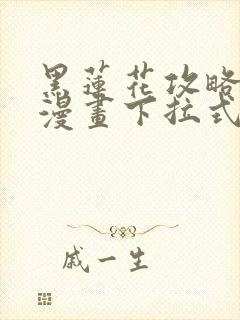 黑蓮花攻略
漫畫下拉式
戚一生